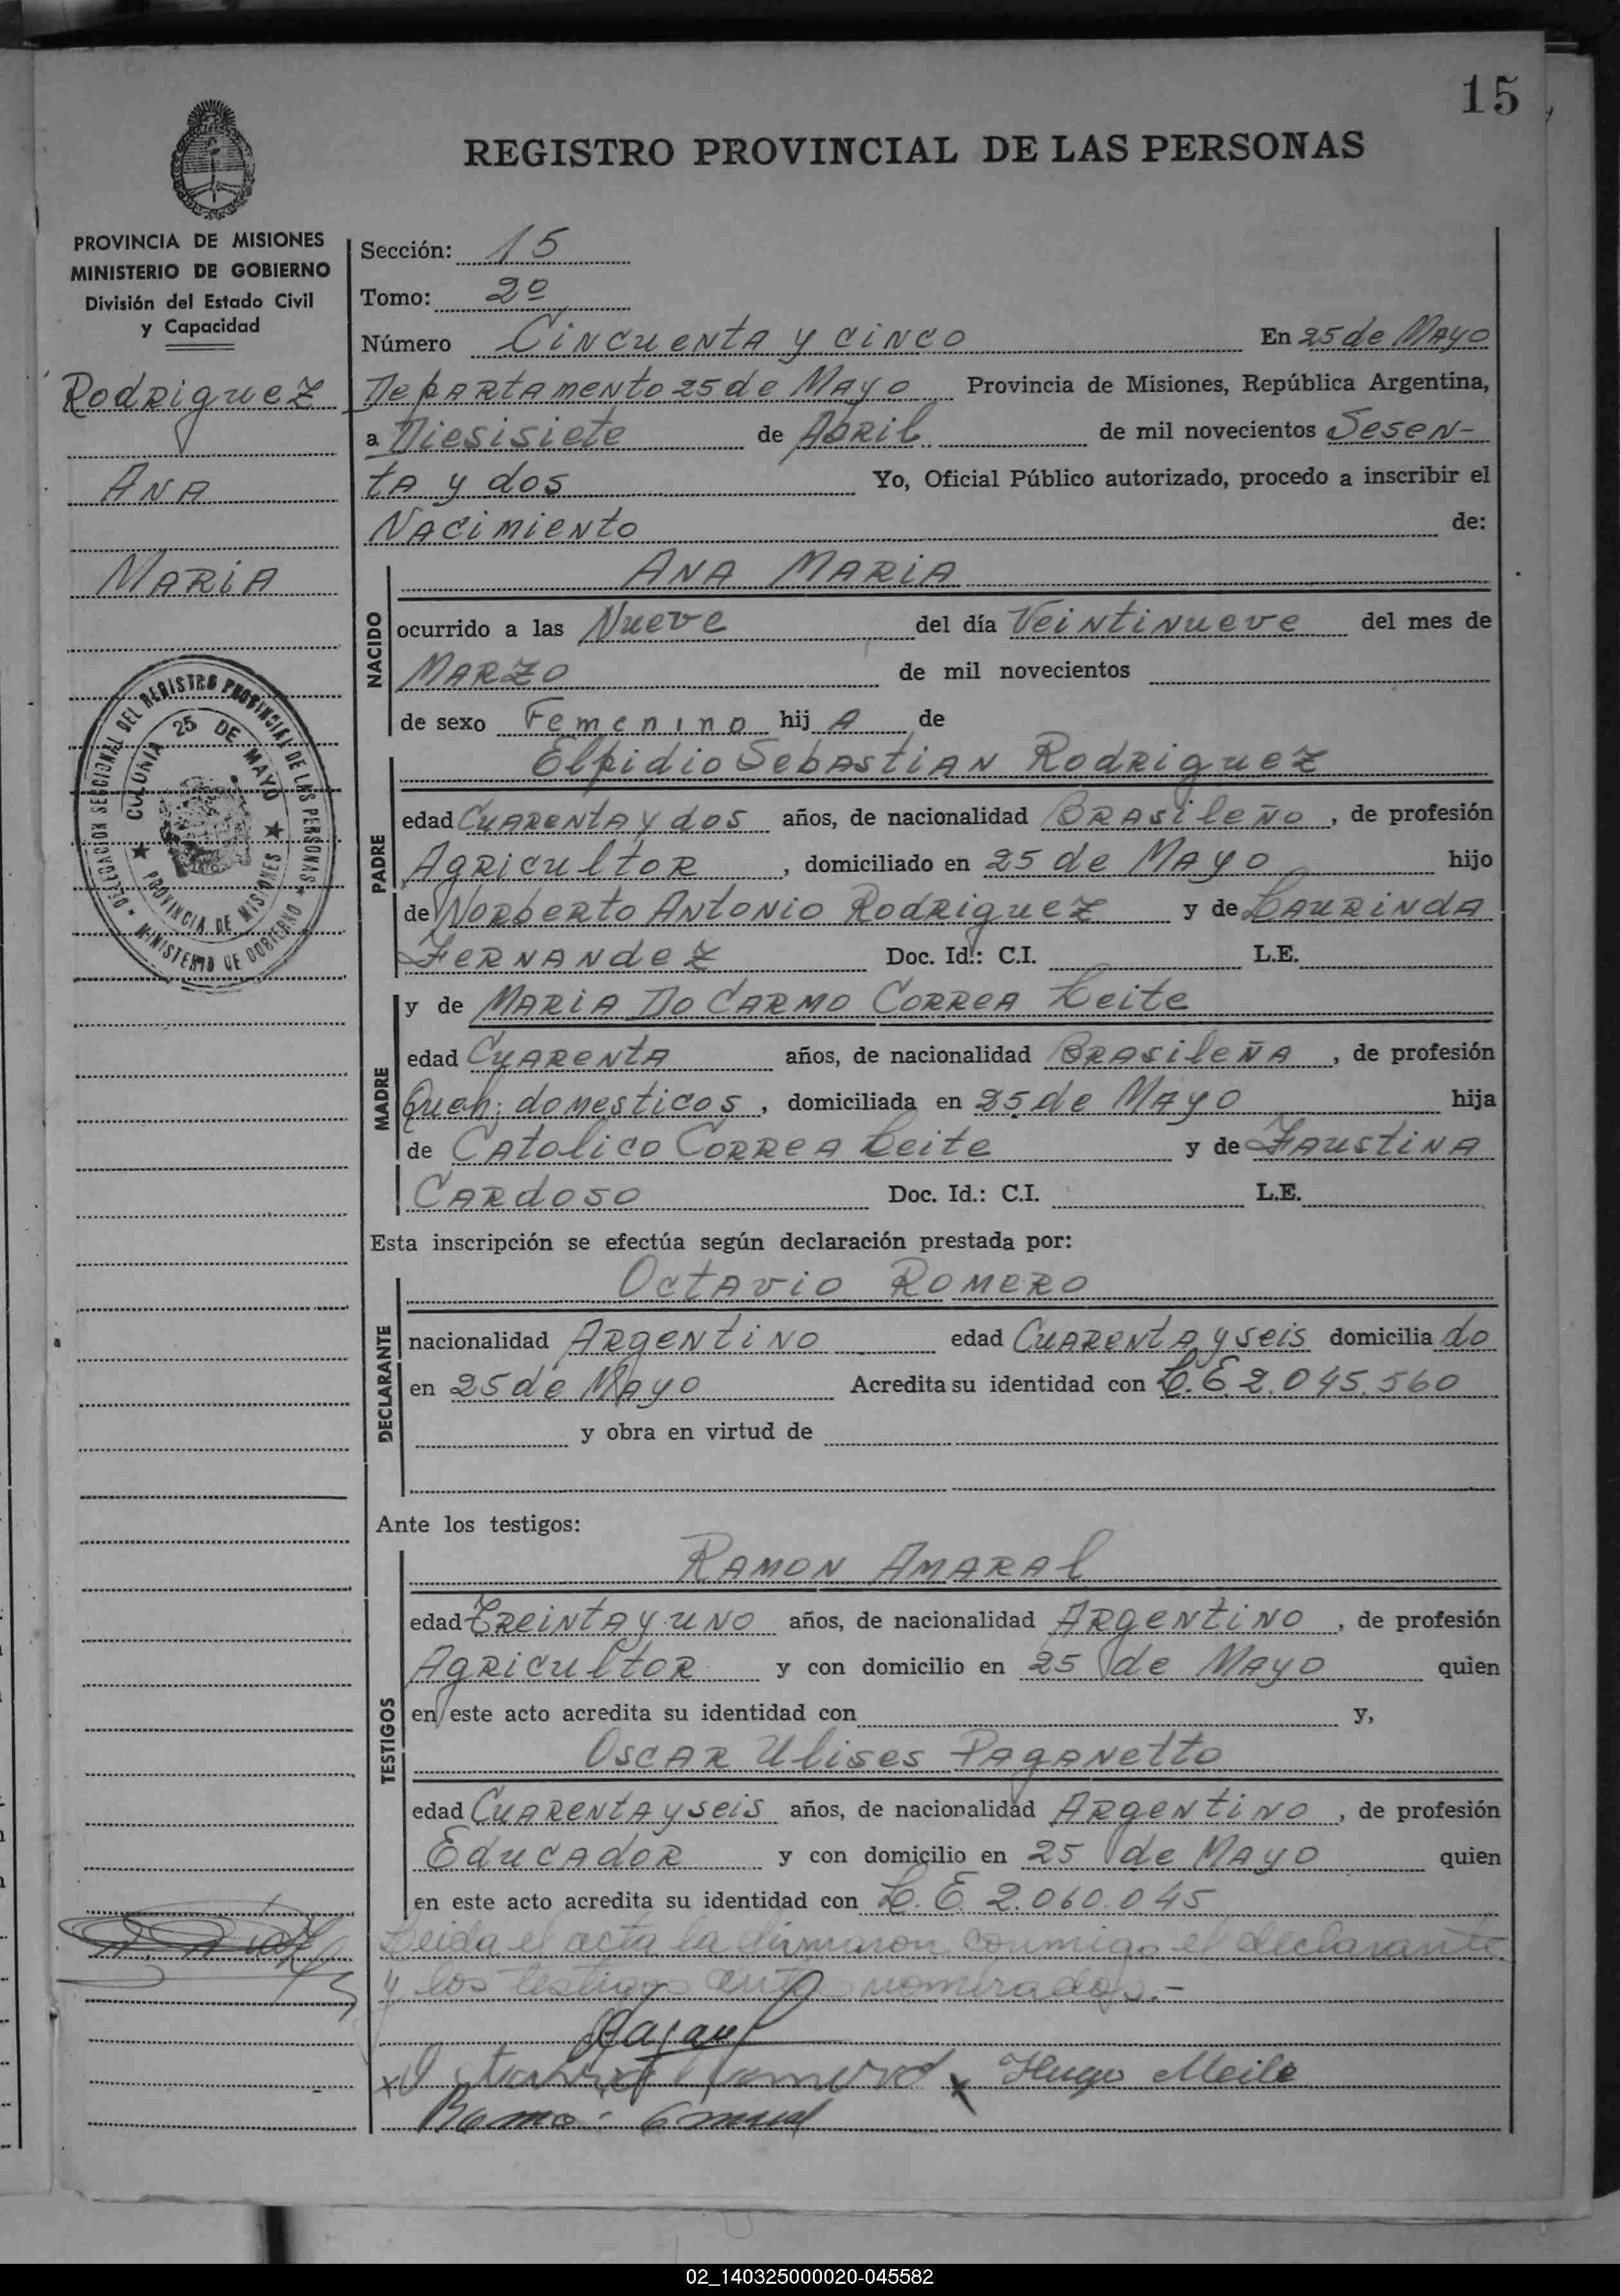 15
REGISTRO PROVINCIAL DE LAS PERSONAS
PROVINCIA DE MISIONES
MINISTERIO DE GOBIERNO
División del Estado Civil
y Capacidad
Rodriguez
Ana
Maria
DELEGACION SECCIONAL DEL REGISTRO PROVINCIAL DE LAS PERSONAS
MINISTERIO DE GOBIERNO
COLONIA 25 DE MAYO
PROVINCIA DE MISIONES
Sección: 15
Tomo: 2º
Número Cincuenta y cinco En 25 de Mayo
Departamento 25 de Mayo Provincia de Misiones, República Argentina,
a Diesisiete de Abril de mil novecientos Sesen-
ta y dos Yo, Oficial Público autorizado, procedo a inscribir el
Nacimiento de:
NACIDO
Ana Maria
ocurrido a las Nueve del día Veintinueve del mes de
Marzo de mil novecientos
de sexo Femenino hij a de
PADRE
Elpidio Sebastian Rodriguez
edad Cuarenta y dos años, de nacionalidad Brasileño, de profesión
Agricultor, domiciliado en 25 de Mayo hijo
de Norberto Antonio Rodriguez y de Laurinda
Fernandez Doc. Id.: C.I. L.E.
MADRE
y de Maria Do Carmo Correa Leite
edad Cuarenta años, de nacionalidad Brasileña, de profesión
Queh. domesticos, domiciliada en 25 de Mayo hija
de Catolico Correa Leite y de Faustina
Cardoso Doc. Id.: C.I. L.E.
Esta inscripción se efectúa según declaración prestada por:
DECLARANTE
Octavio Romero
nacionalidad Argentino edad Cuarenta y seis domicilia do
en 25 de Mayo Acredita su identidad con L.E 2.045.560
y obra en virtud de
Ante los testigos:
TESTIGOS
Ramon Amaral
edad Treinta y uno años, de nacionalidad Argentino, de profesión
Agricultor y con domicilio en 25 de Mayo quien
en este acto acredita su identidad con y,
Oscar Ulises Paganetto
edad Cuarenta y seis años, de nacionalidad Argentino, de profesión
Educador y con domicilio en 25 de Mayo quien
en este acto acredita su identidad con L.E 2.060.045
Leida el acta la firmaron conmigo el declarante
y los testigos nombrados.-
Hugo Meile
02_140325000020-045582